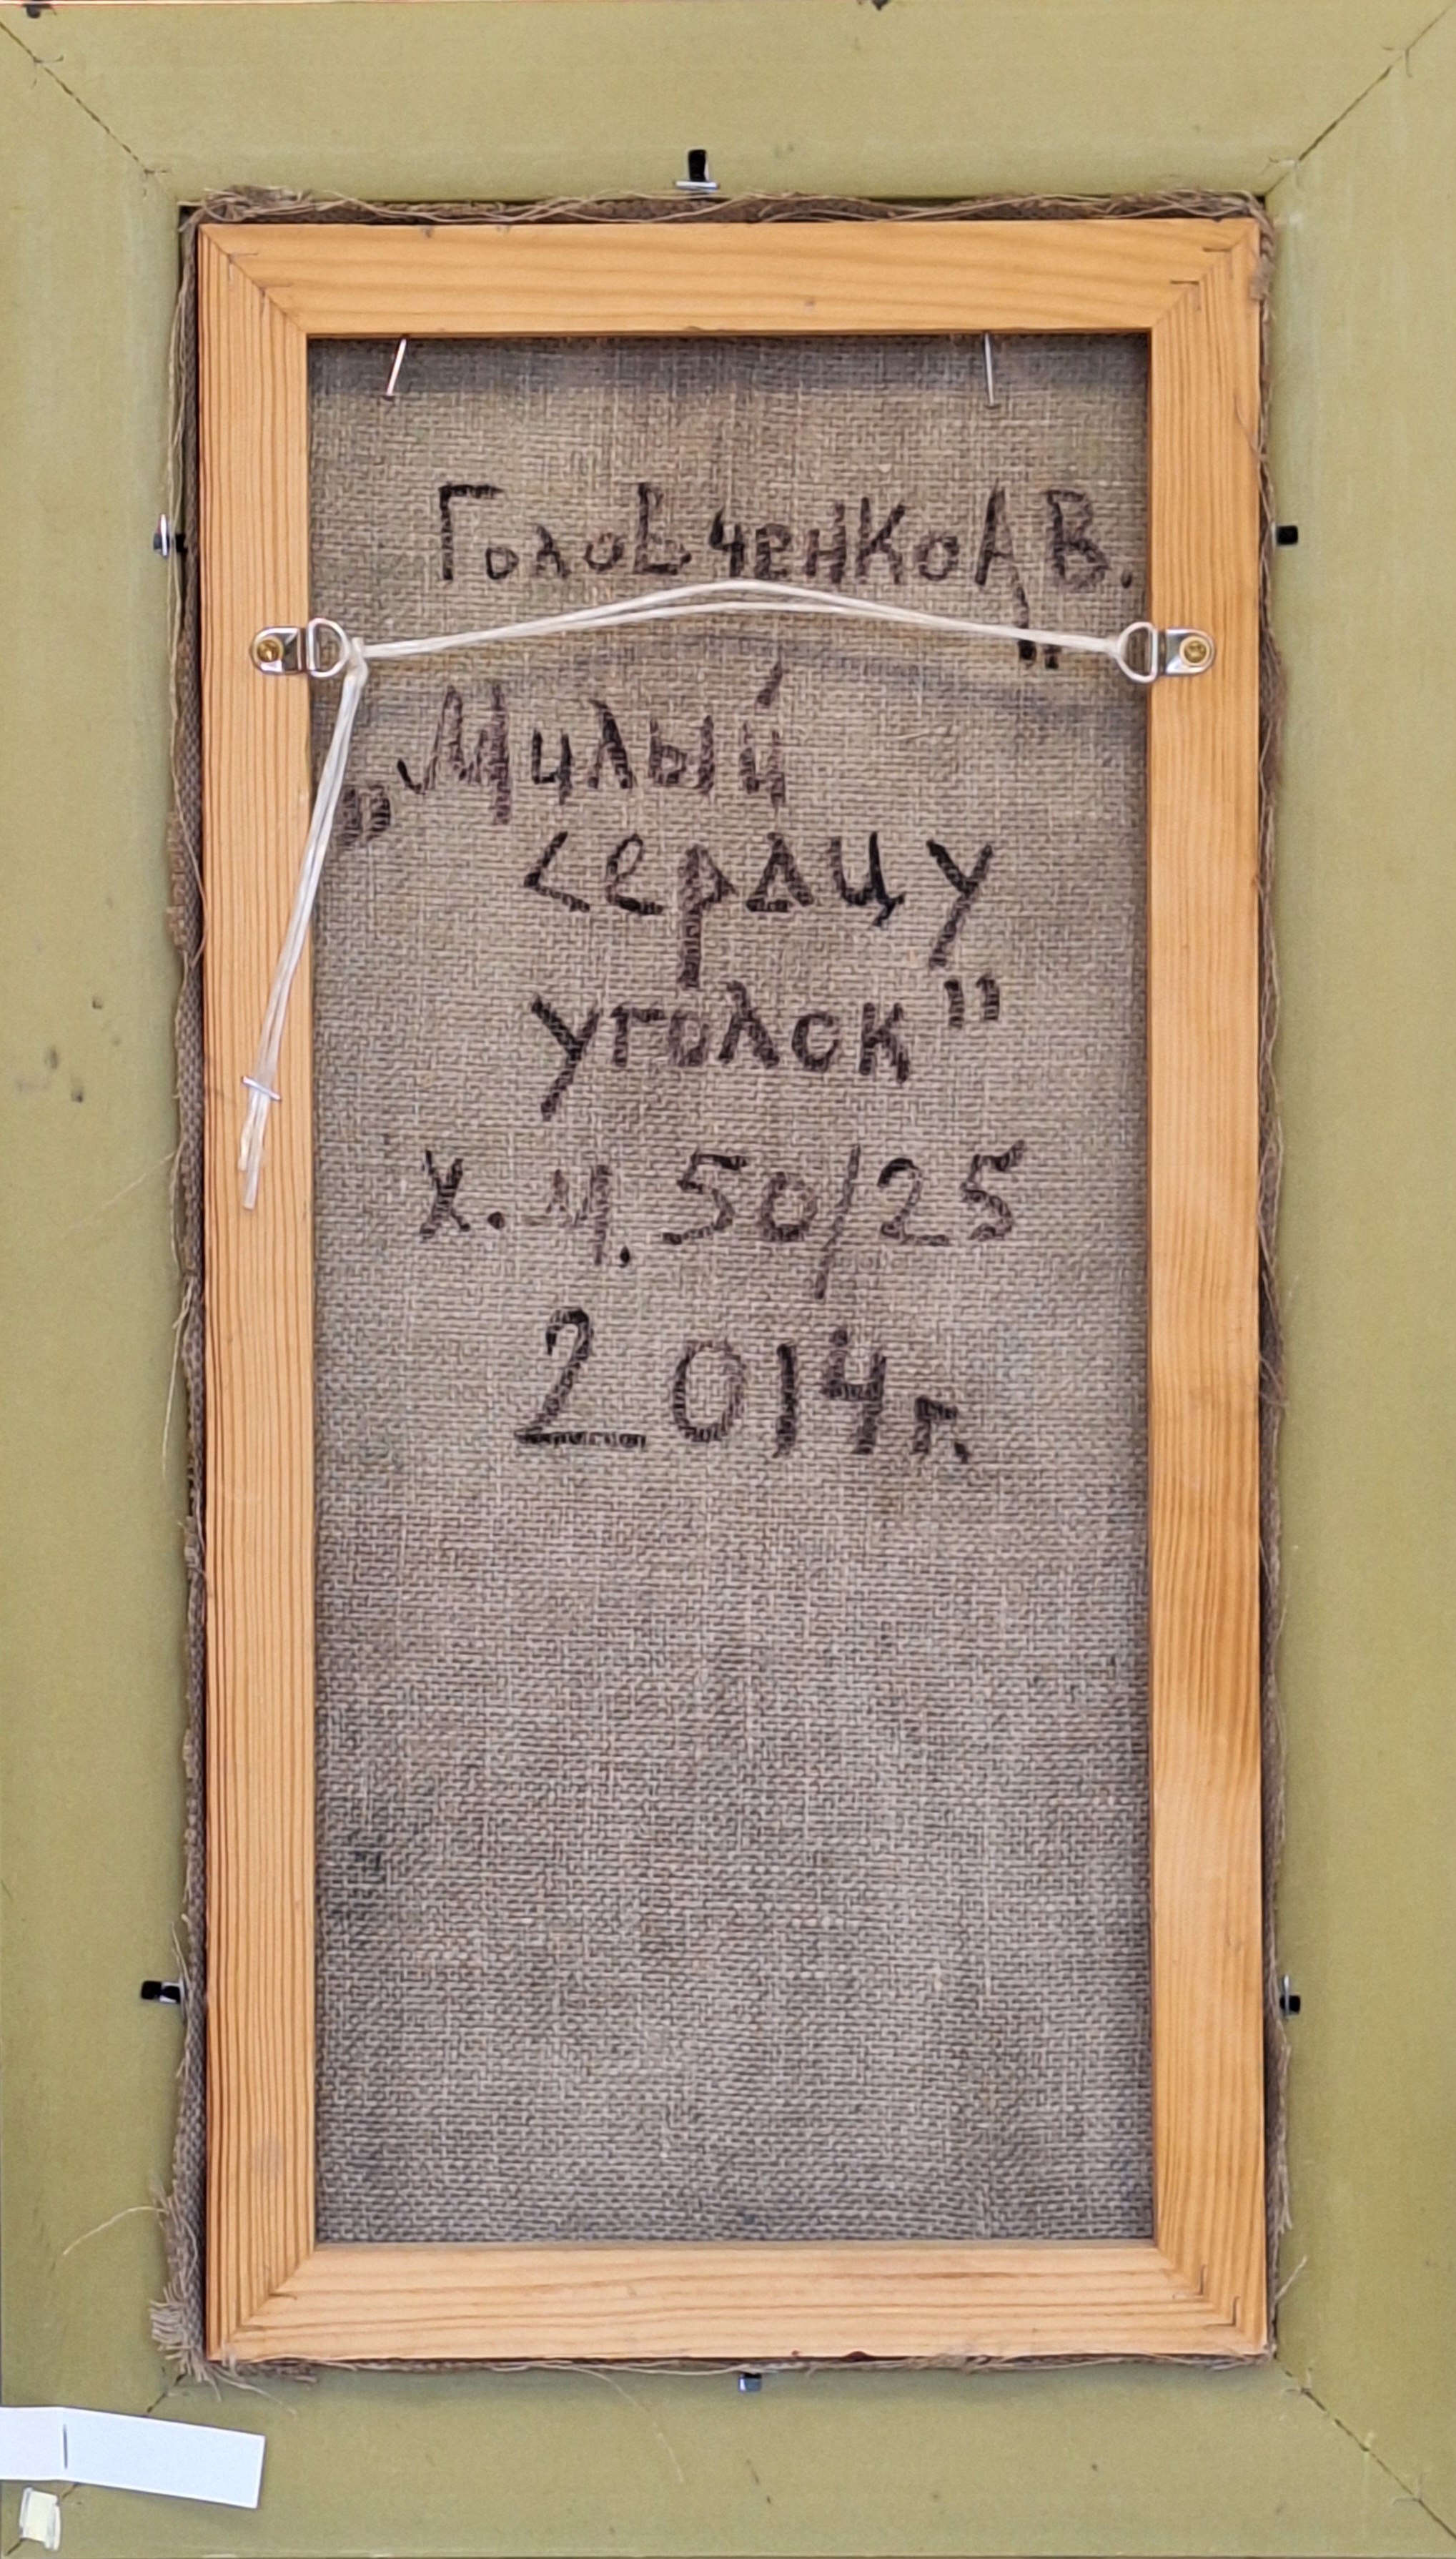 Головченко А.В.
„Милый
сердцу
уголок"
х.м. 50/25
2014г.